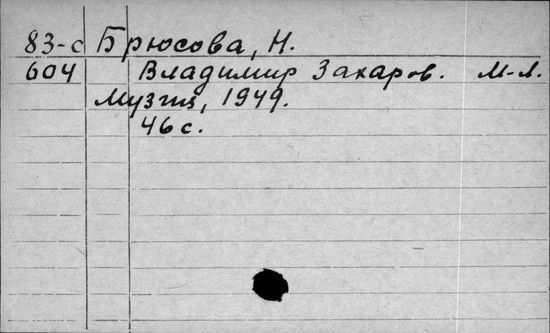 83-с Брюсова, Н.
604 Владимир Захаров. М-Л.
Музгиз, 1949.
46 с.